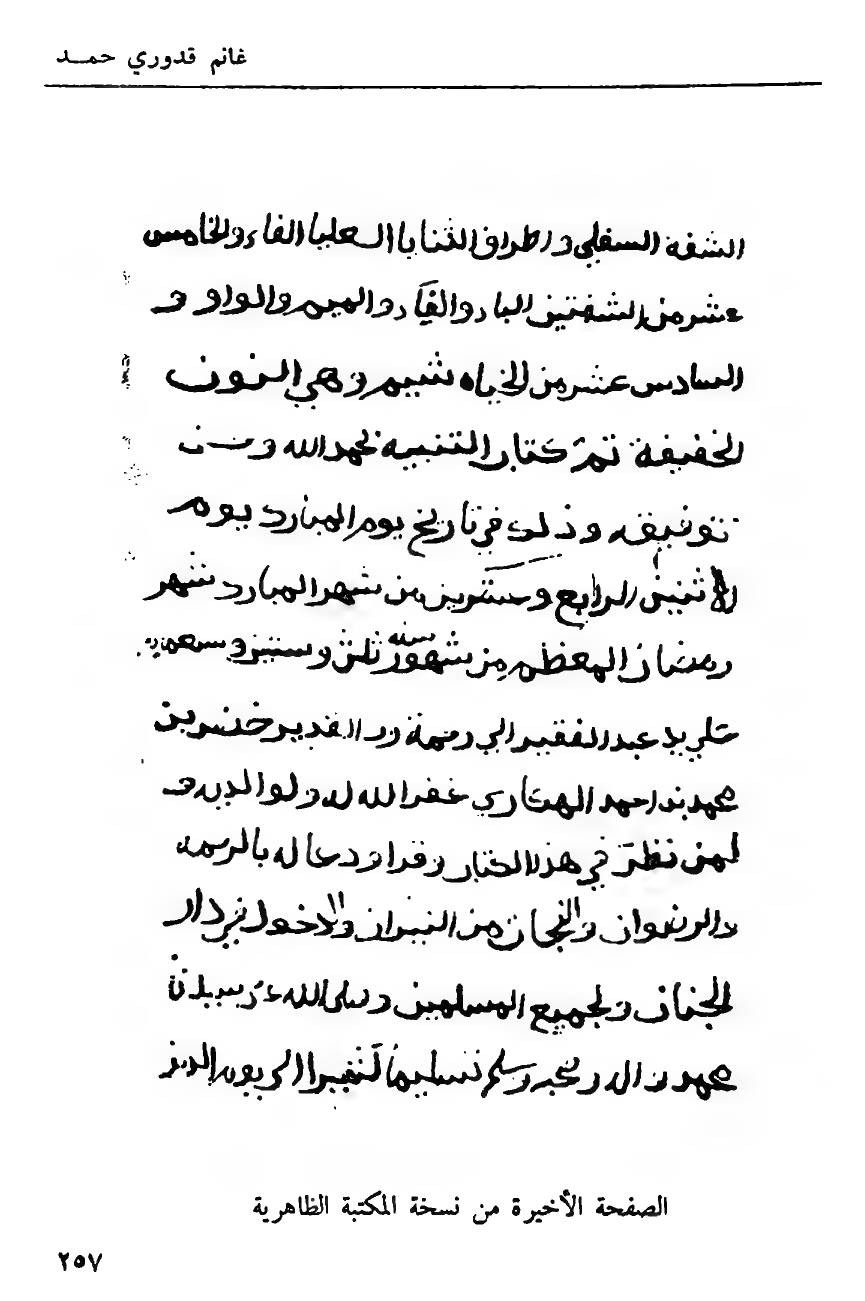 غانم قدوري حمد
الشفة السفلي واطراف الثنايا العليا الفاء والخامس
عشر من الشفتين الباء والفاء والميم والواو و
السادس عشر من الخياشيم وهي النون
الخفيفة تم كتاب التنبيه بحمد الله وحسن
توفيقه وذلك في تاريخ يوم المبارك يوم
الاثنين الرابع وعشرين من شهر المبارك شهر
رمضان المعظم من شهور سنه ثلث وستين و
علي يد عبد الفقير الي رحمة رب القدير خضر بن
محمد بن احمد الهكاري غفر الله له ولوالديه و
لمن نظر في هذا الكتاب وقرا ودعا له بالرحمه
والرضوان والنجاة من النيران والادخول في دار
الجنان ولجميع المسلمين وصلى الله على سيدنا
محمد و اله وصحبه وسلم تسليما كثيرا الى يوم الدين
الصفحة الأخيرة من نسخة المكتبة الظاهرية
٢٥٧